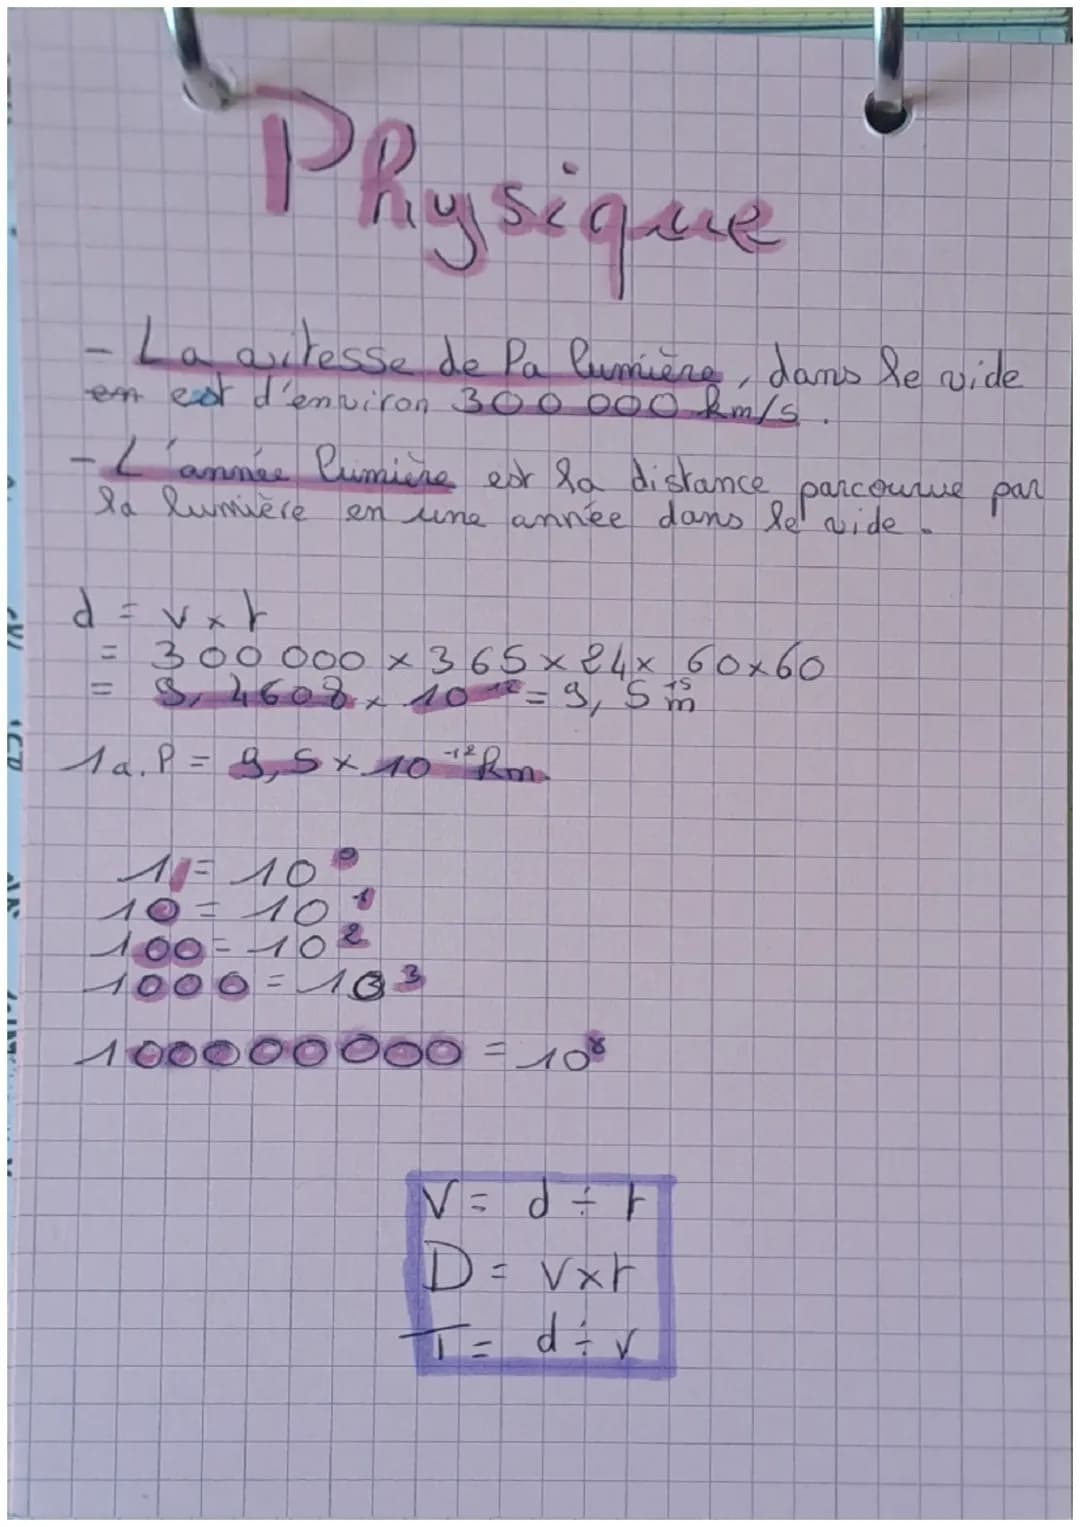 Physique
- La vitesse de la lumière, dans le vide
en est d'environ 300 000 km/s.
- L'année lumière est la distance parcourue par
la lumière en une année dans le vide.
d = v x t
= 300 000 x 365 x 24 x 60 x 60
= 9,4608 x 10¹² = 9,5 ¹⁵ m
1 a.l = 9,5 x 10⁻¹² km
1 = 10⁰
10 = 10¹
100 = 10²
1000 = 10³
100000000 = 10⁸
V = d ÷ t
D = v x t
T = d ÷ v